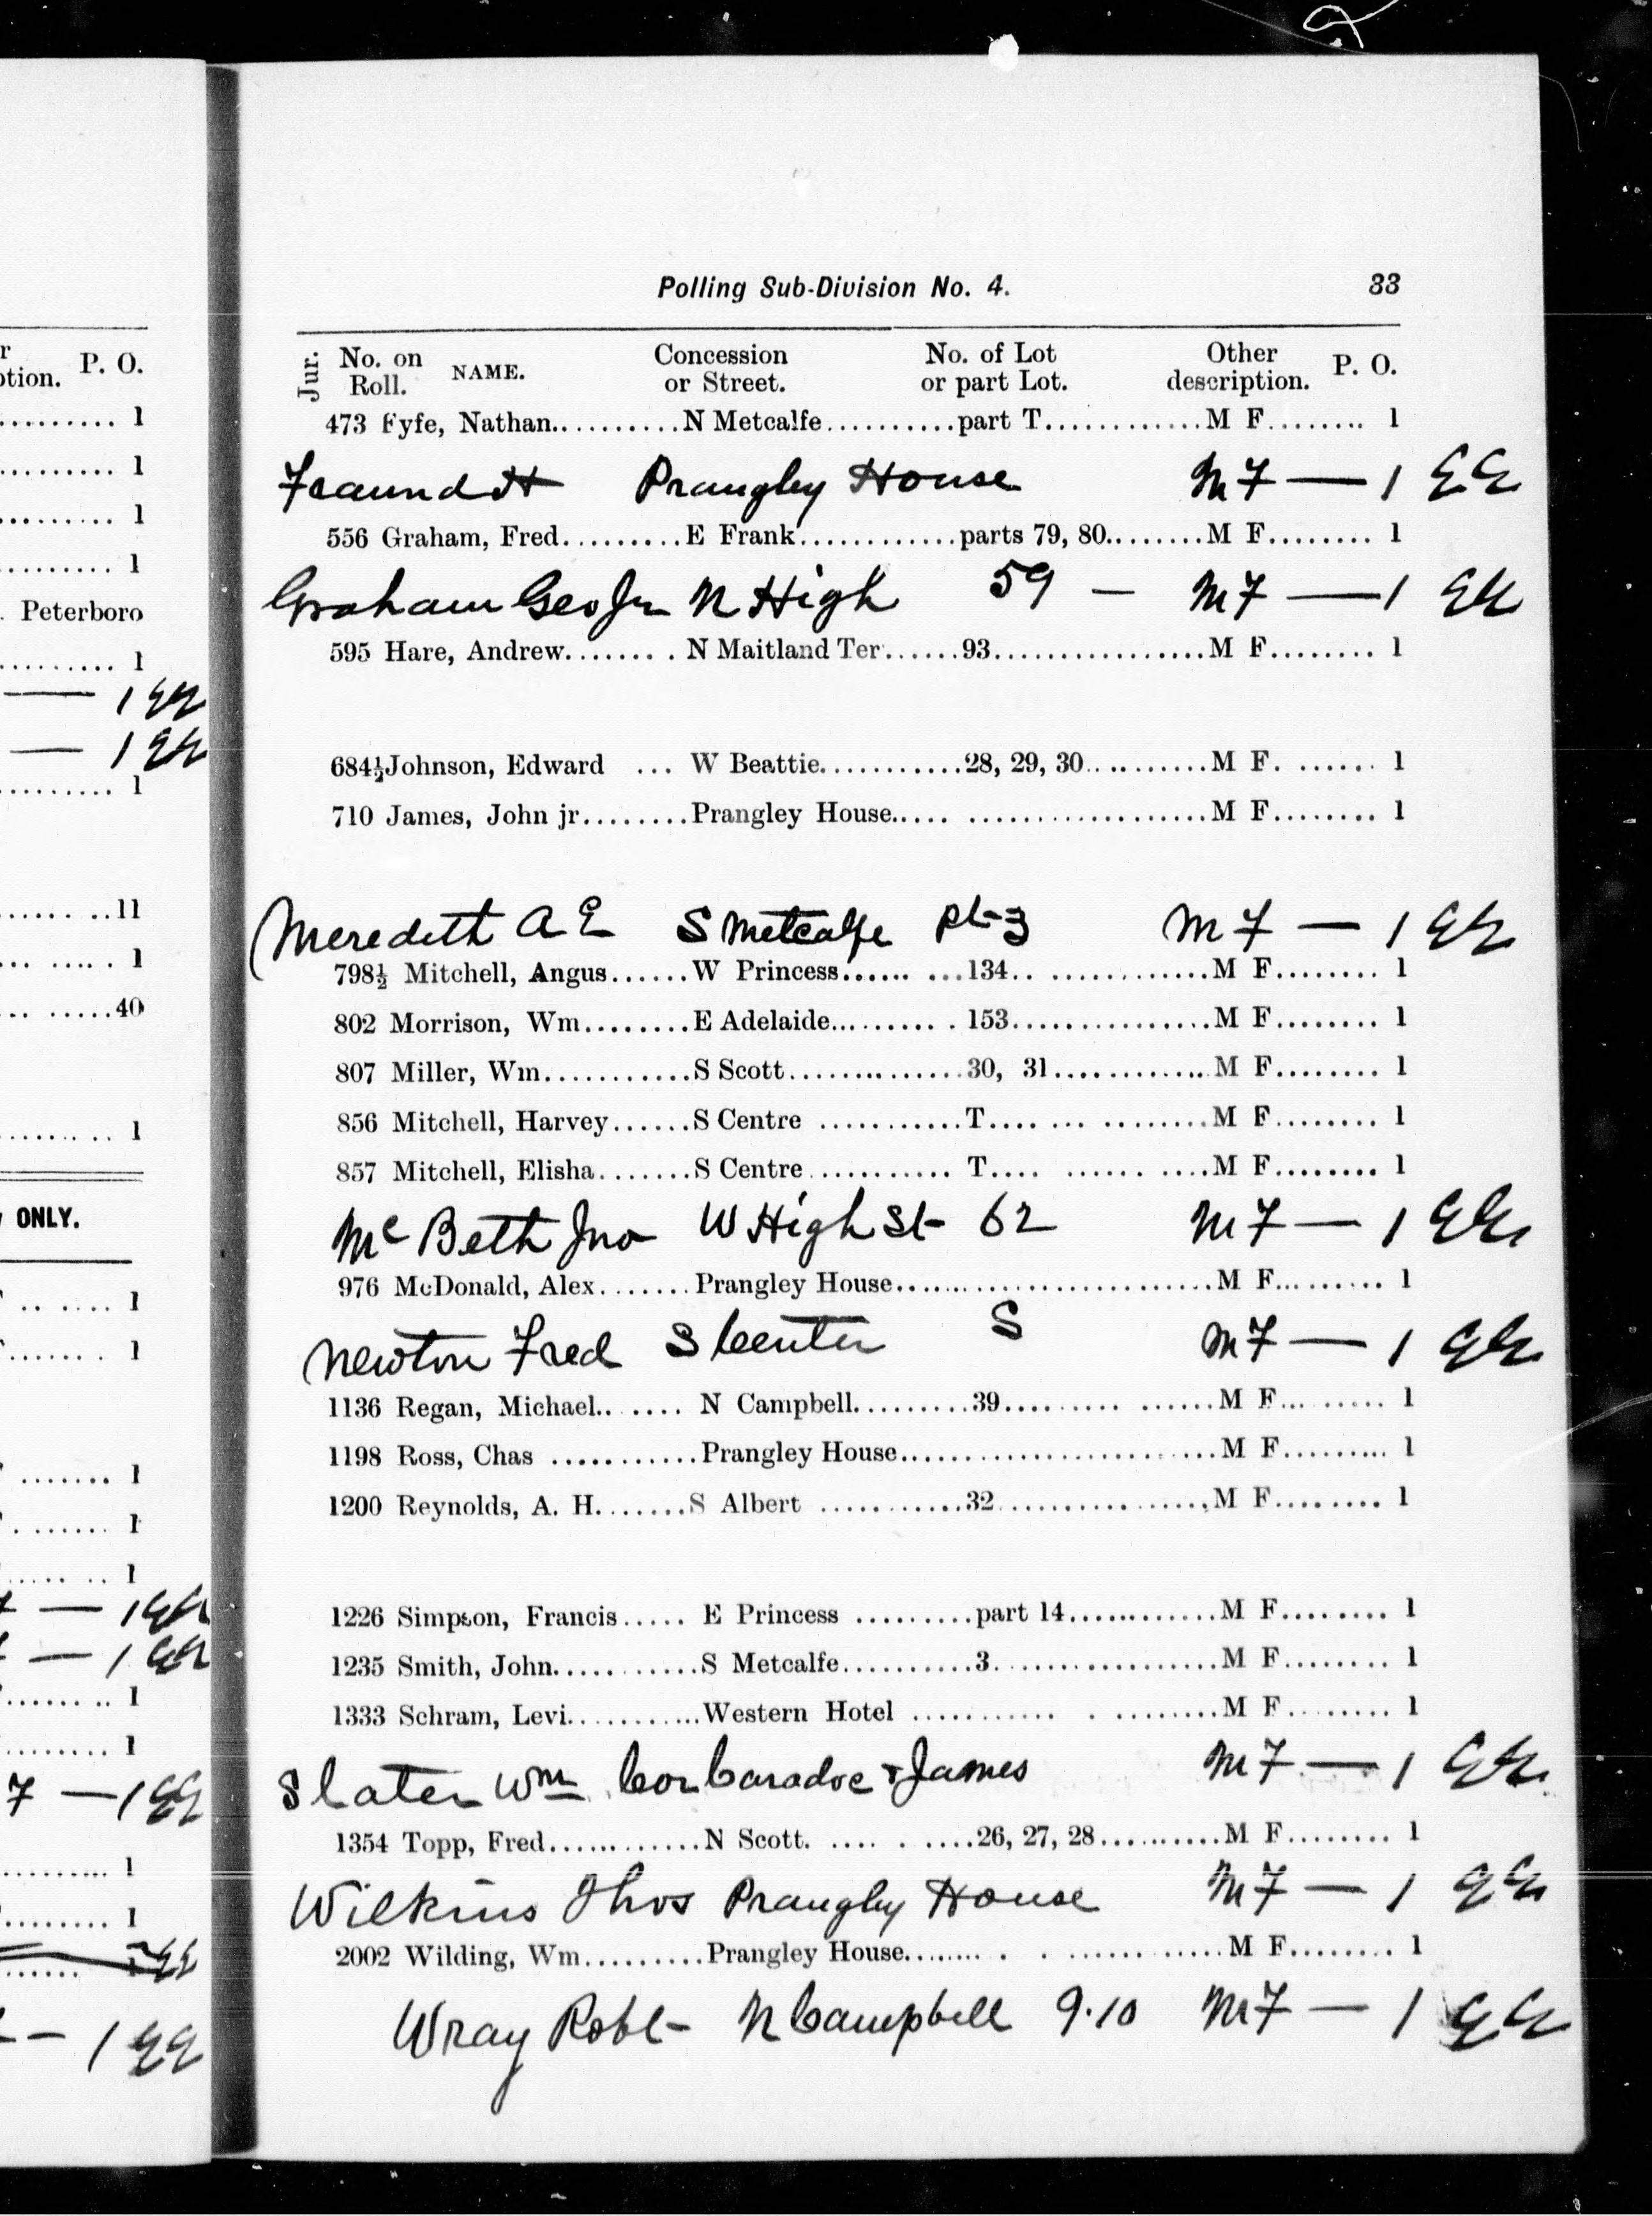 Polling Sub-Division No. 4. 33
Jur. No. on Roll. NAME. Concession or Street. No. of Lot or part Lot. Other description. P. O.
473 Fyfe, Nathan..........N Metcalfe..........part T............M F........ 1
Prangley House M F — 1 EE
556 Graham, Fred..........E Frank............parts 79, 80.........M F........ 1
Graham Geo Jr N High 59 — M F — 1 EE
595 Hare, Andrew........ . N Maitland Ter.......93................M F........ 1
684½ Johnson, Edward ... W Beattie...........28, 29, 30...........M F. ...... 1
710 James, John jr........Prangley House..... ..................M F........ 1
Meredith A E S Metcalfe pt 3 M F — 1 EE
798½ Mitchell, Angus......W Princess...... ...134.. ............M F........ 1
802 Morrison, Wm........E Adelaide.......... . 153...............M F........ 1
807 Miller, Wm...........S Scott.............30, 31.............M F........ 1
856 Mitchell, Harvey......S Centre ...........T.... ... .........M F........ 1
857 Mitchell, Elisha.......S Centre........... T.... ...... ....M F........ 1
McBeth Jno W High St 62 M F — 1 EE
976 McDonald, Alex.......Prangley House........................M F......... 1
Newton Fred S Center S M F — 1 EE
1136 Regan, Michael.. ..... N Campbell..........39......... ......M F... ...... 1
1198 Ross, Chas ...........Prangley House........................M F......... 1
1200 Reynolds, A. H.......S Albert ...........32................M F........ 1
1226 Simpson, Francis..... E Princess .........part 14............M F........ 1
1235 Smith, John...........S Metcalfe..........3.................M F........ 1
1333 Schram, Levi...........Western Hotel ........... . .........M F......... 1
Slater Wm Cor Caradoc & James M F — 1 EE
1354 Topp, Fred............N Scott. .... . ....26, 27, 28..........M F........ 1
Wilkins Thos Prangley House M F — 1 EE
2002 Wilding, Wm.........Prangley House........ . . ...........M F........ 1
Wray Robt N Campbell 9.10 M F — 1 EE
P. O.
1
1
1
1
Peterboro
1
1 EE
1 EE
1
11
1
40
1
ONLY.
1
1
1
1
1
1 EE
1 EE
1
1
7 — 1 EE
1
1
EE
1 EE